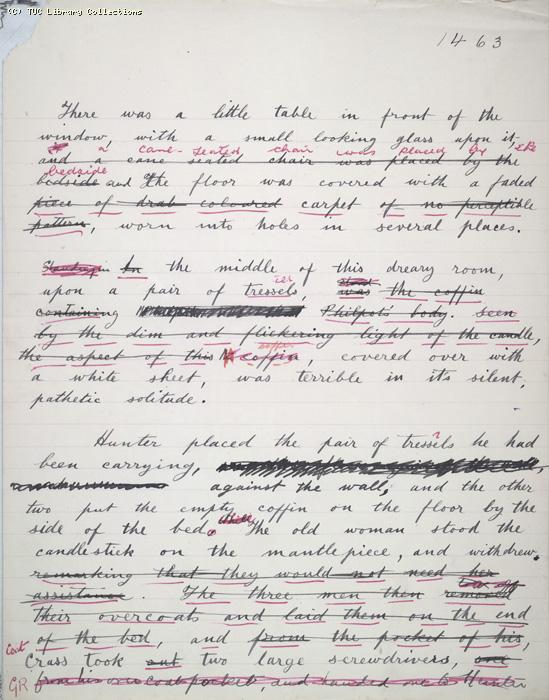 (C) TUC Library Collections
1463
There was a little table in front of the
window, with a small looking glass upon it;
a cane-seated chair was placed by the
and a cane seated chair was placed by the
bedside
bedside and the floor was covered with a faded
piece of drab coloured carpet of no perceptible
pattern, worn into holes in several places.
Standing in In the middle of this dreary room,
upon a pair of tressels, stood was the coffin
containing Philpot's body. seen
by the dim and flickering light of the candle,
the aspect of this coffin, covered over with
a white sheet, was terrible in its silent,
pathetic solitude.
Hunter placed the pair of tressels he had
been carrying,
against the wall, and the other
two put the empty coffin on the floor by the
side of the bed. The old woman stood the
candlestick on the mantlepiece, and withdrew.
remarking that they would not need her
assistance. The three men then removed
their overcoats and laid them on the end
of the bed, and from the pocket of his,
Coat
Crass took out two large screwdrivers, one
GR from his own coat pocket, and handed one to Hunter